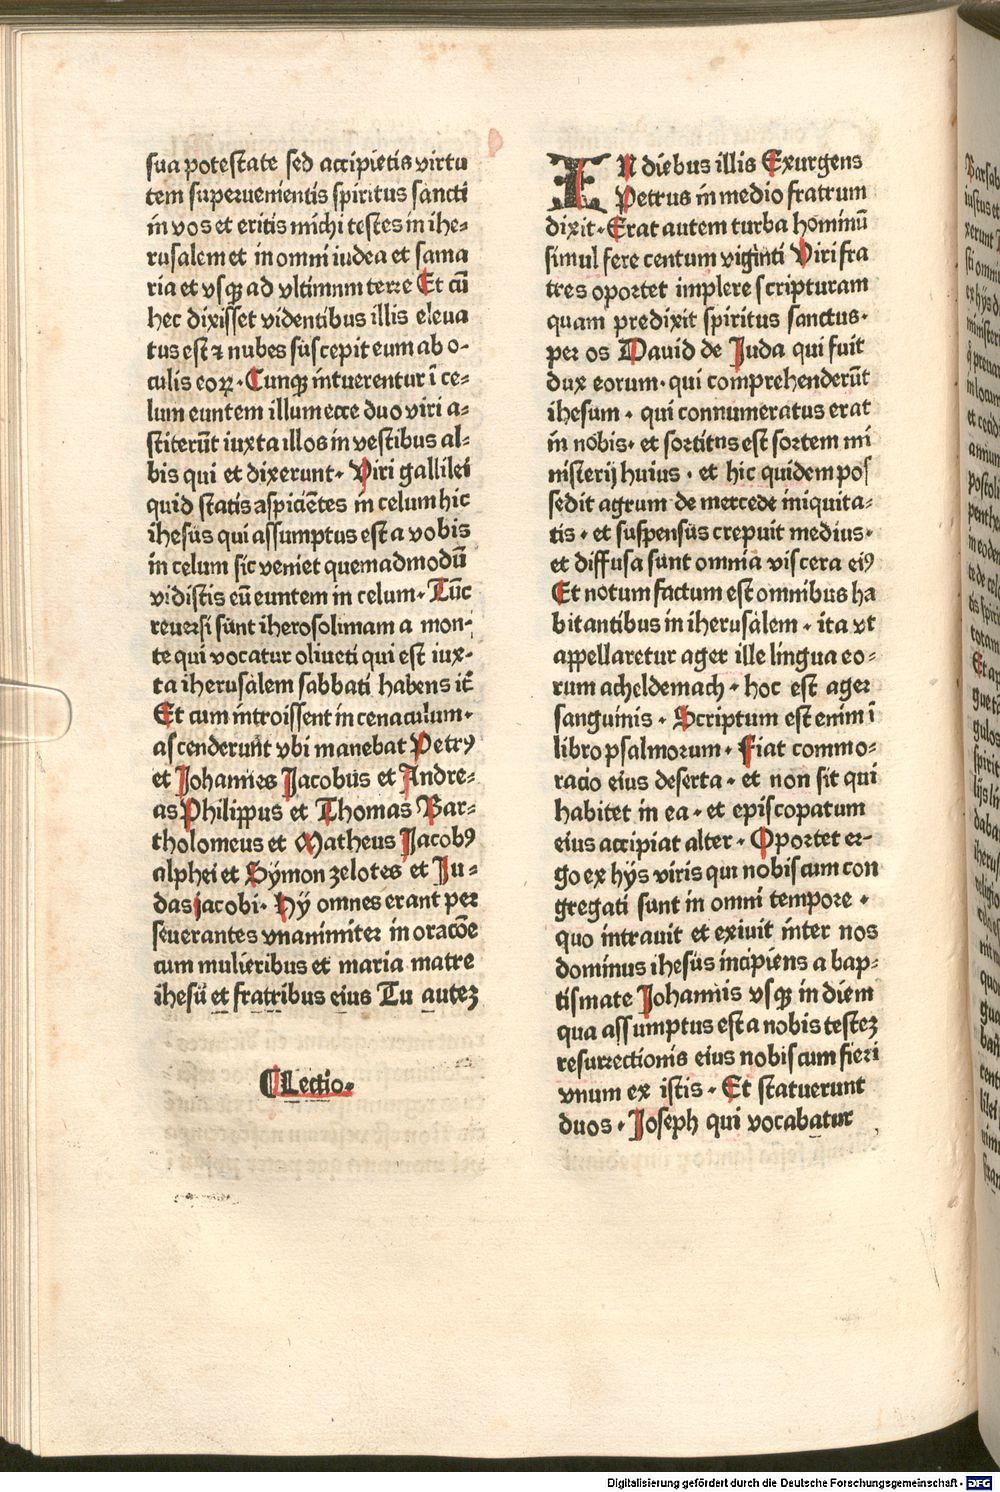 sua potestate sed accipietis virtu
tem superuenientis spiritus sancti
in vos et eritis michi testes in ihe⸗
rusalem et in omni iudea et sama
ria et vsqꝫ ad vltimum terre Et cū
hec dixisset videntibus illis eleua
tus est ⁊ nubes suscepit eum ab o⸗
culis eoꝝ. Cunqꝫ intuerentur ī ce⸗
lum euntem illum ecce duo viri a⸗
stiterūt iuxta illos in vestibus al⸗
bis qui et dixerunt. Viri gallilei
quid statis aspiciētes in celum hic
ihesūs qui assumptus est a vobis
in celum sic veniet quemadmodū
vidistis eū euntem in celum. Tūc
reuersi sūnt iherosolimam a mon⸗
te qui vocatur oliueti qui est iux⸗
ta iherusalem sabbati habens it̄
Et cum introissent in cenaculum.
ascenderunt vbi manebat Petrꝰ
et Johannes Jacobus et Andre⸗
as Philippus et Thomas Bar⸗
tholomeus et Matheus Jacobꝰ
alphei et Symon zelotes et Ju⸗
das jacobi. Hÿ omnes erant per
seuerantes vnanimiter in oracōe
cum mulieribus et maria matre
ihesū et fratribus eius Tu autez
⸿Lectio.
IN diebus illis Exurgens
Petrus in medio fratrum
dixit. Erat autem turba hominū
simul fere centum viginti Viri fra
tres oportet implere scripturam
quam predixit spiritus sanctus.
per os Dauid de Juda qui fuit
dux eorum. qui comprehenderūt
ihesum. qui connumeratus erat
in nobis. et sortitus est sortem mi
nisterij huius. et hic quidem pos
sedit agrum de mercede iniquita⸗
tis. et suspensus crepuit medius.
et diffusa sunt omnia viscera eiꝰ
Et notum factum est omnibus ha
bitantibus in iherusalem. ita vt
appellaretur ager ille lingua eo⸗
rum acheldemach. hoc est ager
sanguinis. Scriptum est enim ī
libro psalmorum. Fiat commo⸗
racio eius deserta. et non sit qui
habitet in ea. et episcopatum
eius accipiat alter. Oportet er⸗
go ex hÿs viris qui nobiscum con
gregati sunt in omni tempore.
quo intrauit et exiuit inter nos
dominus ihesūs incipiens a bap⸗
tismate Johannis vsqꝫ in diem
qua assumptus est a nobis testez
resurrectionis eius nobiscum fieri
vnum ex istis. Et statuerunt
duos. Joseph qui vocabatur
Digitalisierung gefördert durch die Deutsche Forschungsgemeinschaft - DFG